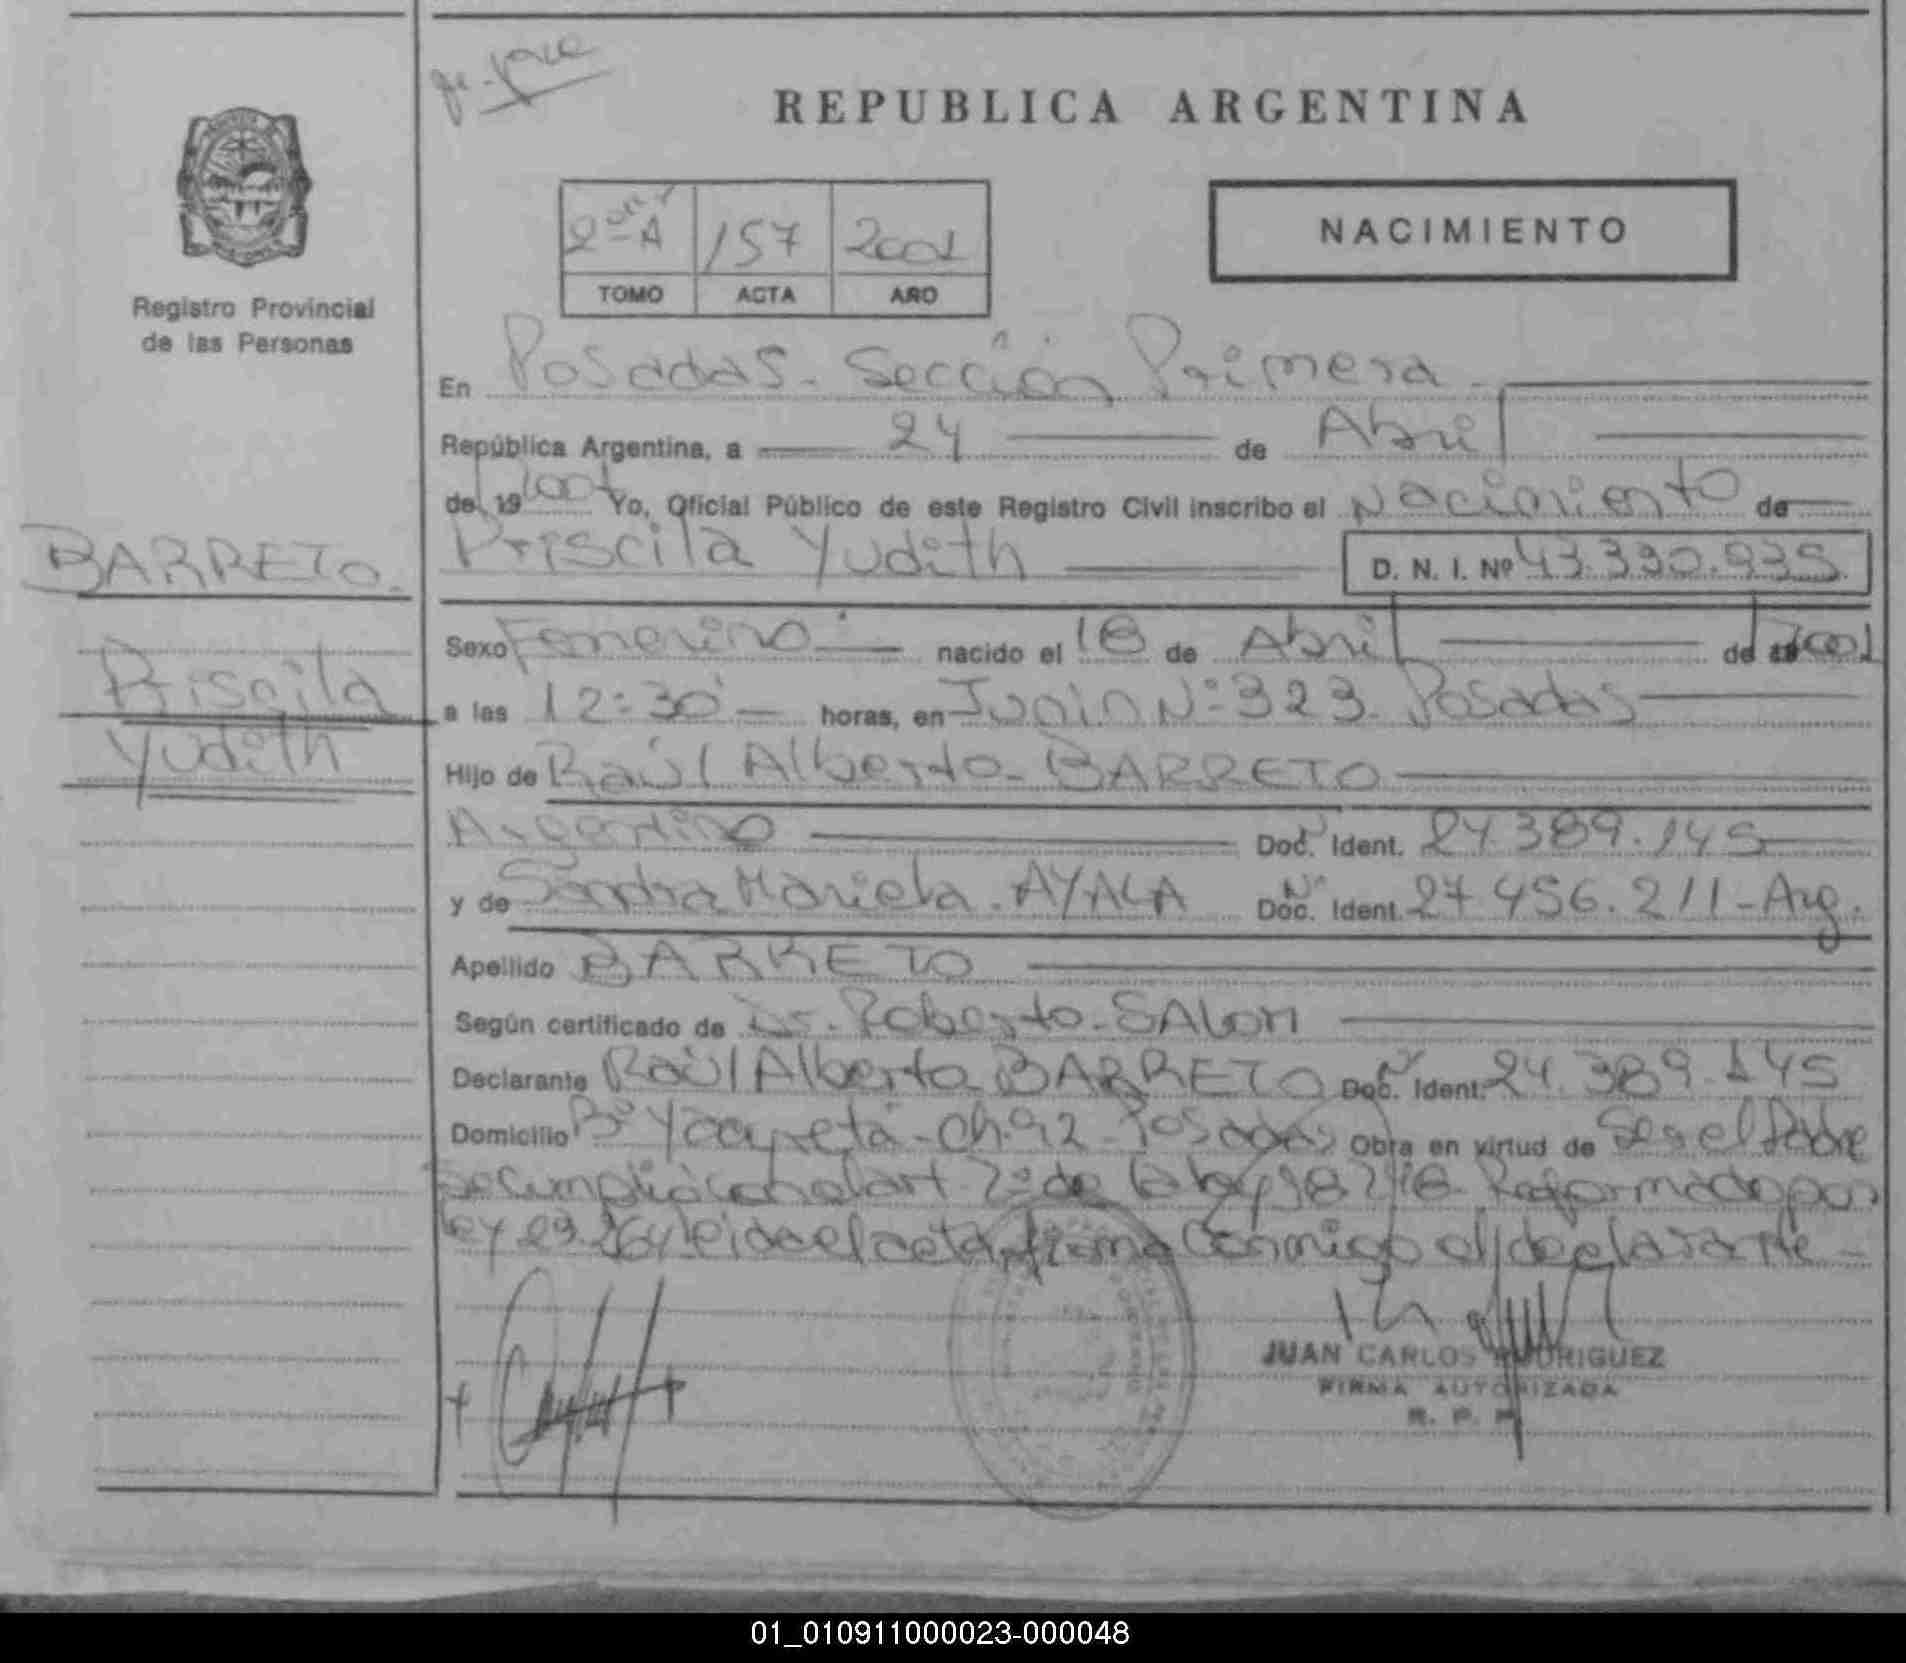 REPUBLICA ARGENTINA
Registro Provincial
de las Personas
2º A 157 2001
TOMO ACTA AÑO
NACIMIENTO
En Posadas - Sección Primera
República Argentina, a 24 de Abril
de 19 2001 Yo, Oficial Público de este Registro Civil inscribo el Nacimiento de
Priscila Yudith D. N. I. Nº 43.390.935
BARRETO.
Priscila
Yudith
Sexo Femenino nacido el 18 de Abril de 2001
a las 12:30 horas, en Junin Nº 323 Posadas
Hijo de Raúl Alberto - BARRETO
Argentino Doc. Ident. 24.389.145
y de Sandra Mariela - AYALA Doc. Ident. 27 456.211 - Arg.
Apellido BARRETO
Según certificado de Dr. Roberto - SALOM
Declarante Raúl Alberto BARRETO Doc. Ident. 24.389.145
Domicilio Bº Yacyretá - Ch. 92 - Posadas Obra en virtud de Ser el Padre
se cumplió con el art 7º de la Ley 18248 Reformado por
Ley 23.264 leida el acta, firma conmigo el declarante -
JUAN CARLOS RODRIGUEZ
FIRMA AUTORIZADA
R. P. P.
01_010911000023-000048